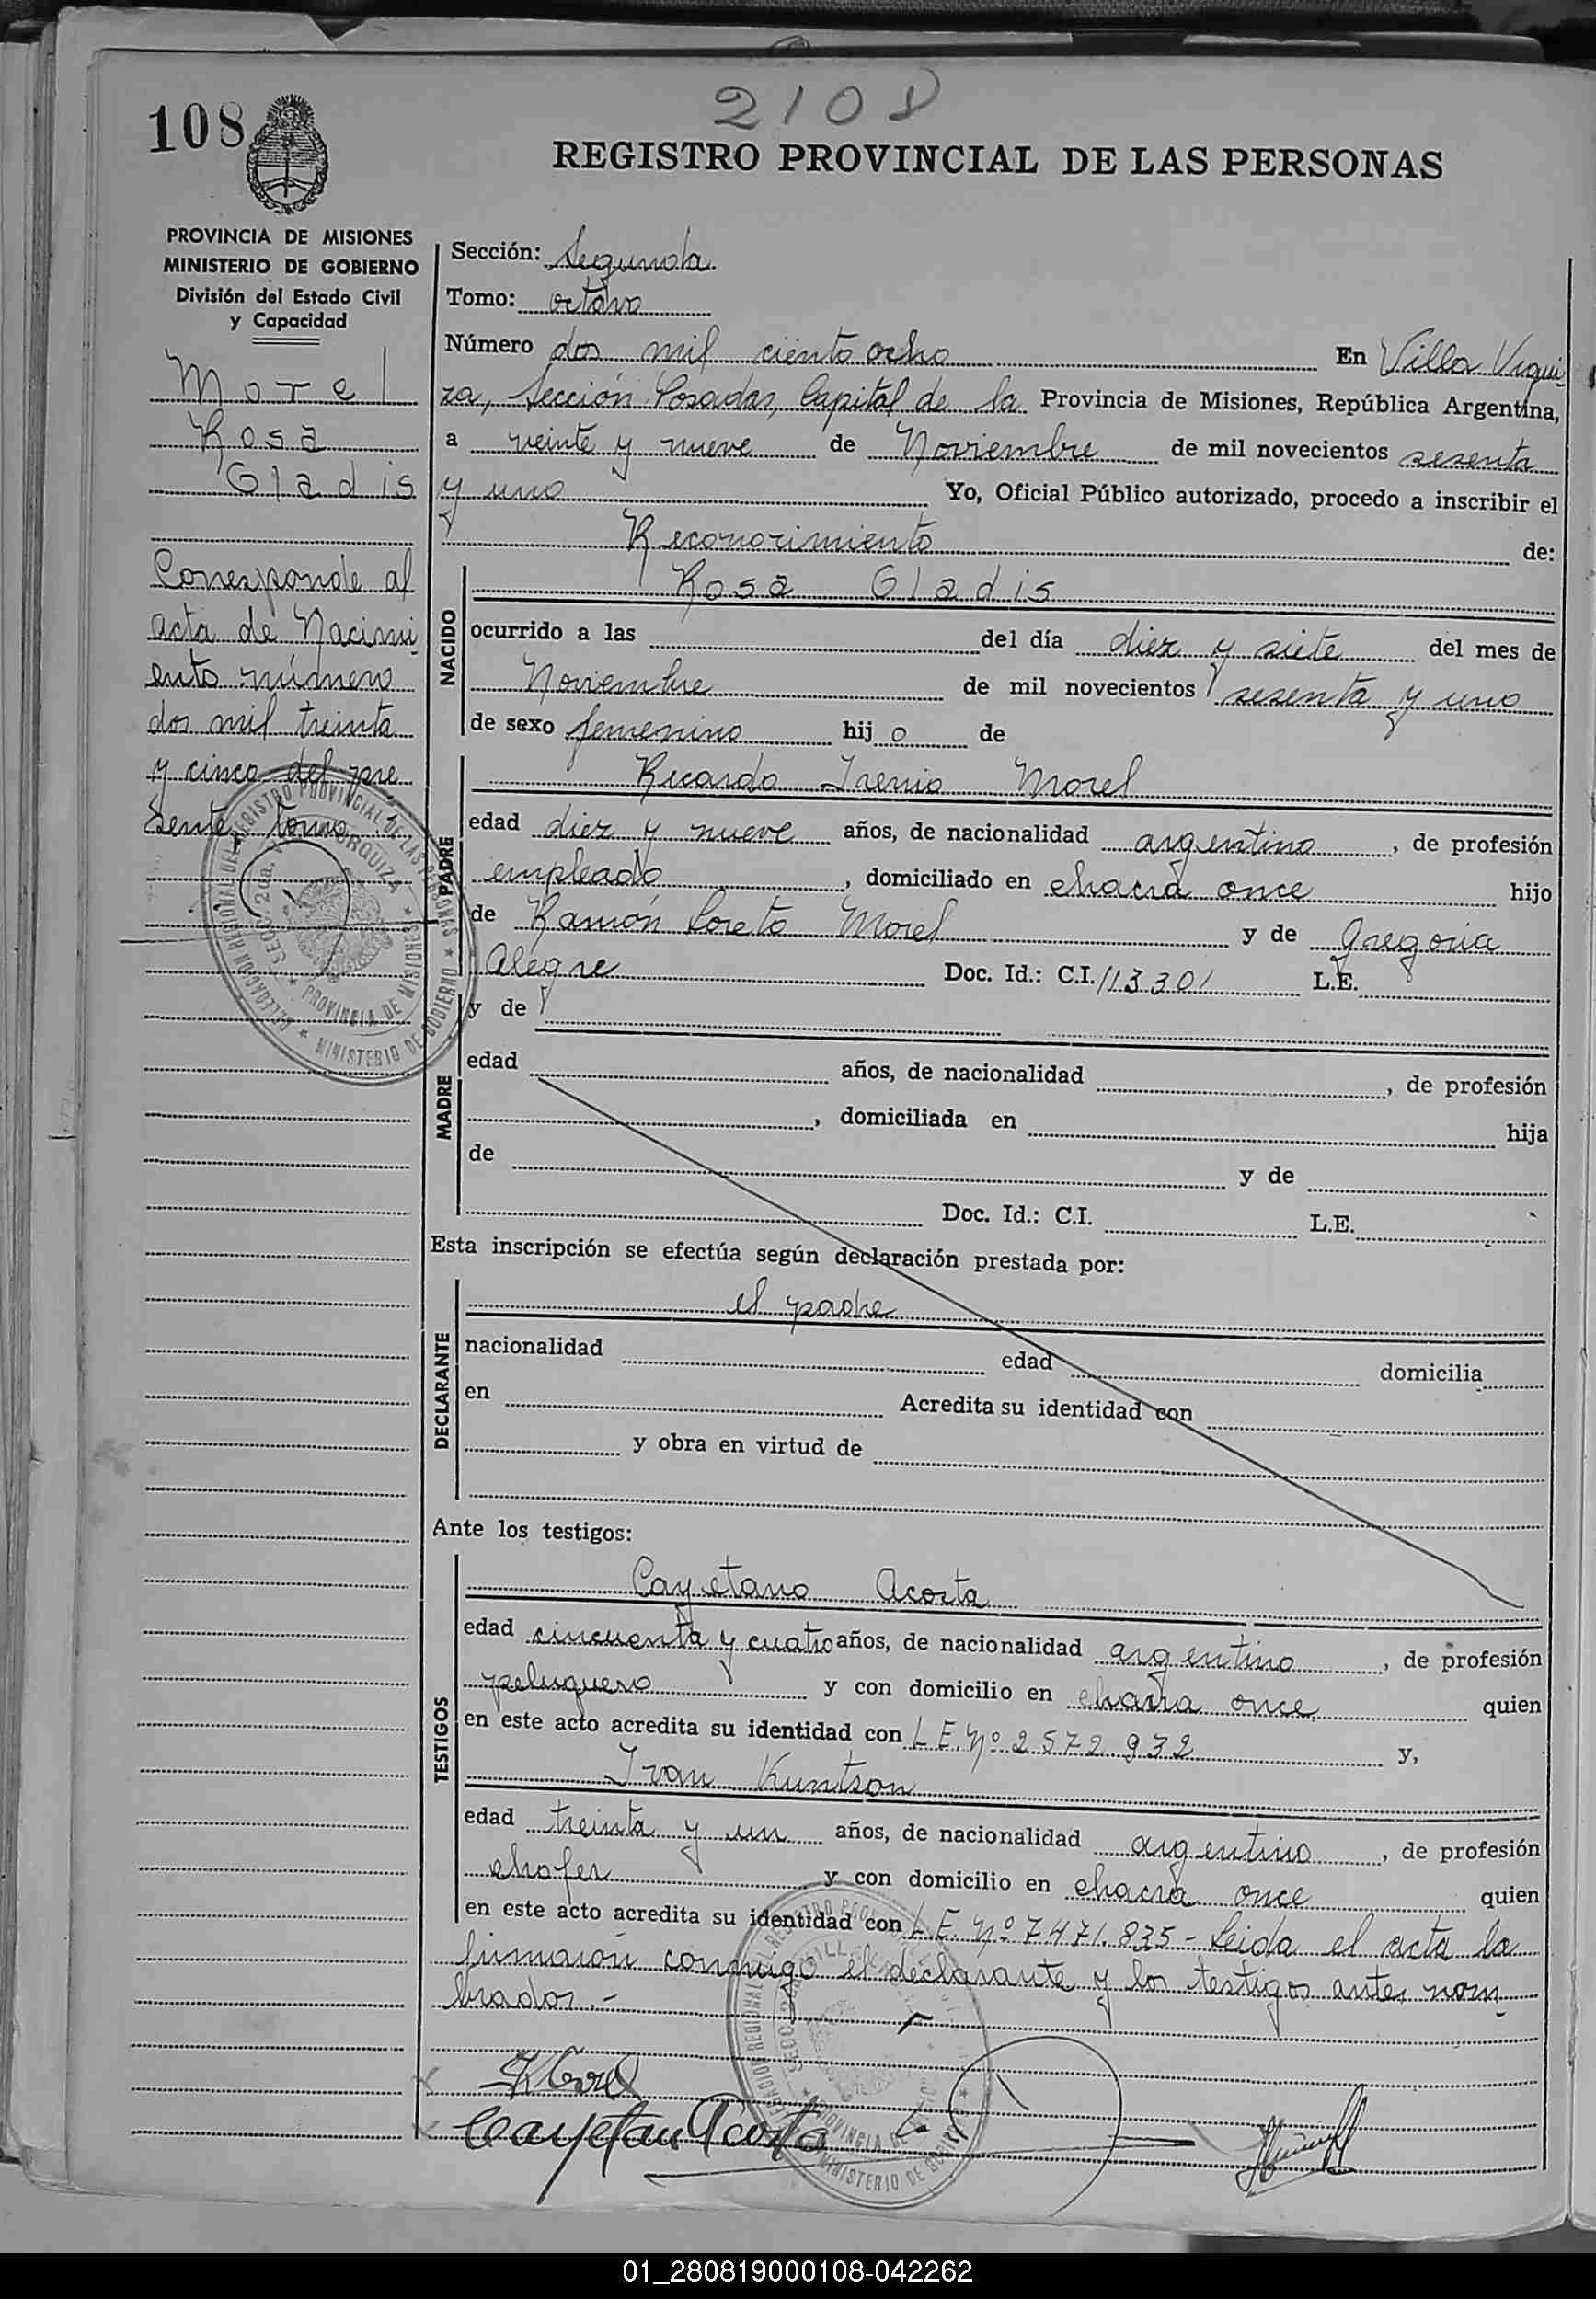 2108
108
REGISTRO PROVINCIAL DE LAS PERSONAS
PROVINCIA DE MISIONES
MINISTERIO DE GOBIERNO
División del Estado Civil
y Capacidad
Morel
Rosa
Gladis
Corresponde al
acta de Nacimi
ento número
dos mil treinta
y cinco del pre
sente tomo.
Sección: Segunda
Tomo: octavo
Número dos mil ciento ocho En Villa Urqui
za, Sección Posadas, Capital de la Provincia de Misiones, República Argentina,
a veinte y nueve de Noviembre de mil novecientos sesenta
y uno Yo, Oficial Público autorizado, procedo a inscribir el
Reconocimiento de:
NACIDO
Rosa Gladis
ocurrido a las del día diez y siete del mes de
Noviembre de mil novecientos sesenta y uno
de sexo femenino hij o de
PADRE
Ricardo Irenio Morel
edad diez y nueve años, de nacionalidad argentino, de profesión
empleado, domiciliado en chacra once hijo
de Ramón Loreto Morel y de Gregoria
Alegre Doc. Id.: C.I. 113.301 L.E.
y de
MADRE
edad años, de nacionalidad , de profesión
, domiciliada en hija
de y de
Doc. Id.: C.I. L.E.
Esta inscripción se efectúa según declaración prestada por:
DECLARANTE
el padre
nacionalidad edad domicilia
en Acredita su identidad con
y obra en virtud de
Ante los testigos:
TESTIGOS
Cayetano Acosta
edad cincuenta y cuatro años, de nacionalidad argentino, de profesión
peluquero y con domicilio en chacra once quien
en este acto acredita su identidad con L.E. Nº 2572932 y,
Ivan Kuntson
edad treinta y un años, de nacionalidad argentino, de profesión
chofer y con domicilio en chacra once quien
en este acto acredita su identidad con L.E. Nº 7471.835 - Leida el acta la
firmaron conmigo el declarante y los testigos antes nom
brados.-
Cayetan Acosta
01_280819000108-042262